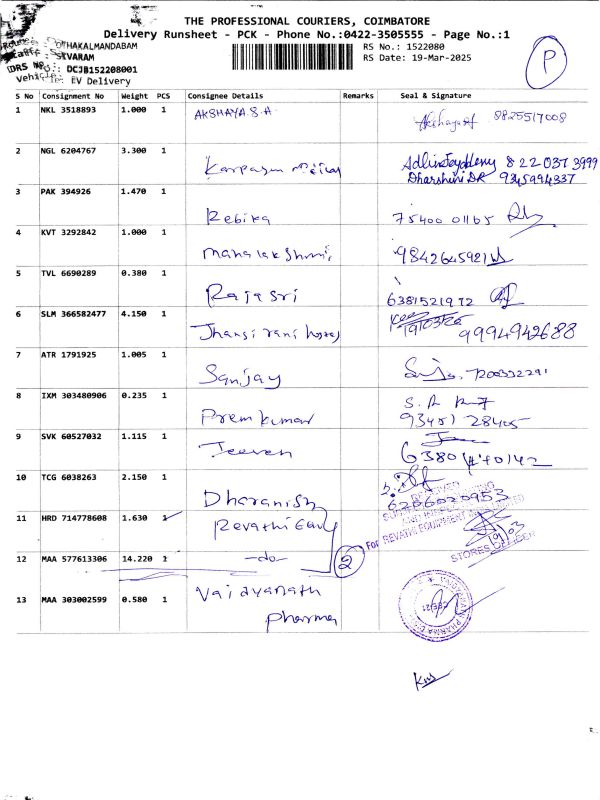 THE PROFESSIONAL COURIERS, COIMBATORE
Delivery Runsheet - PCK - Phone No.:0422-3505555 - Page No.:1
OTHAKALMANDABAM
RS No.: 1522080
RS Date: 19-Mar-2025
DRS No.: DCJB152208001
EV Delivery
P
S No Consignment No Weight PCS Consignee Details Remarks Seal & Signature
1 NKL 3518893 1.000 1 AKSHAYA.S.A 8825517008
2 NGL 6204767 3.300 1 8220373999
Dharshini DR 9345994337
3 PAK 394926 1.470 1 Rebika 75400 01165
4 KVT 3292842 1.000 1 9842645921
5 TVL 6690289 0.380 1 Rajasri 6381521972
6 SLM 366582477 4.150 1 Jhansi rani 19/03/25 9994942688
7 ATR 1791925 1.005 1 Sanjay
8 IXM 303480906 0.235 1 Prem kumar 93451 28405
9 SVK 60527032 1.115 1 Jeeven
10 TCG 6038263 2.150 1 Dharanish
11 HRD 714778608 1.630 1 Revathi FOR REVATHI EQUIPMENT
12 MAA 577613306 14.220 1 -do- 2 19/03 STORES OFFICER
13 MAA 303002599 0.580 1 Vaidyanath
Pharma